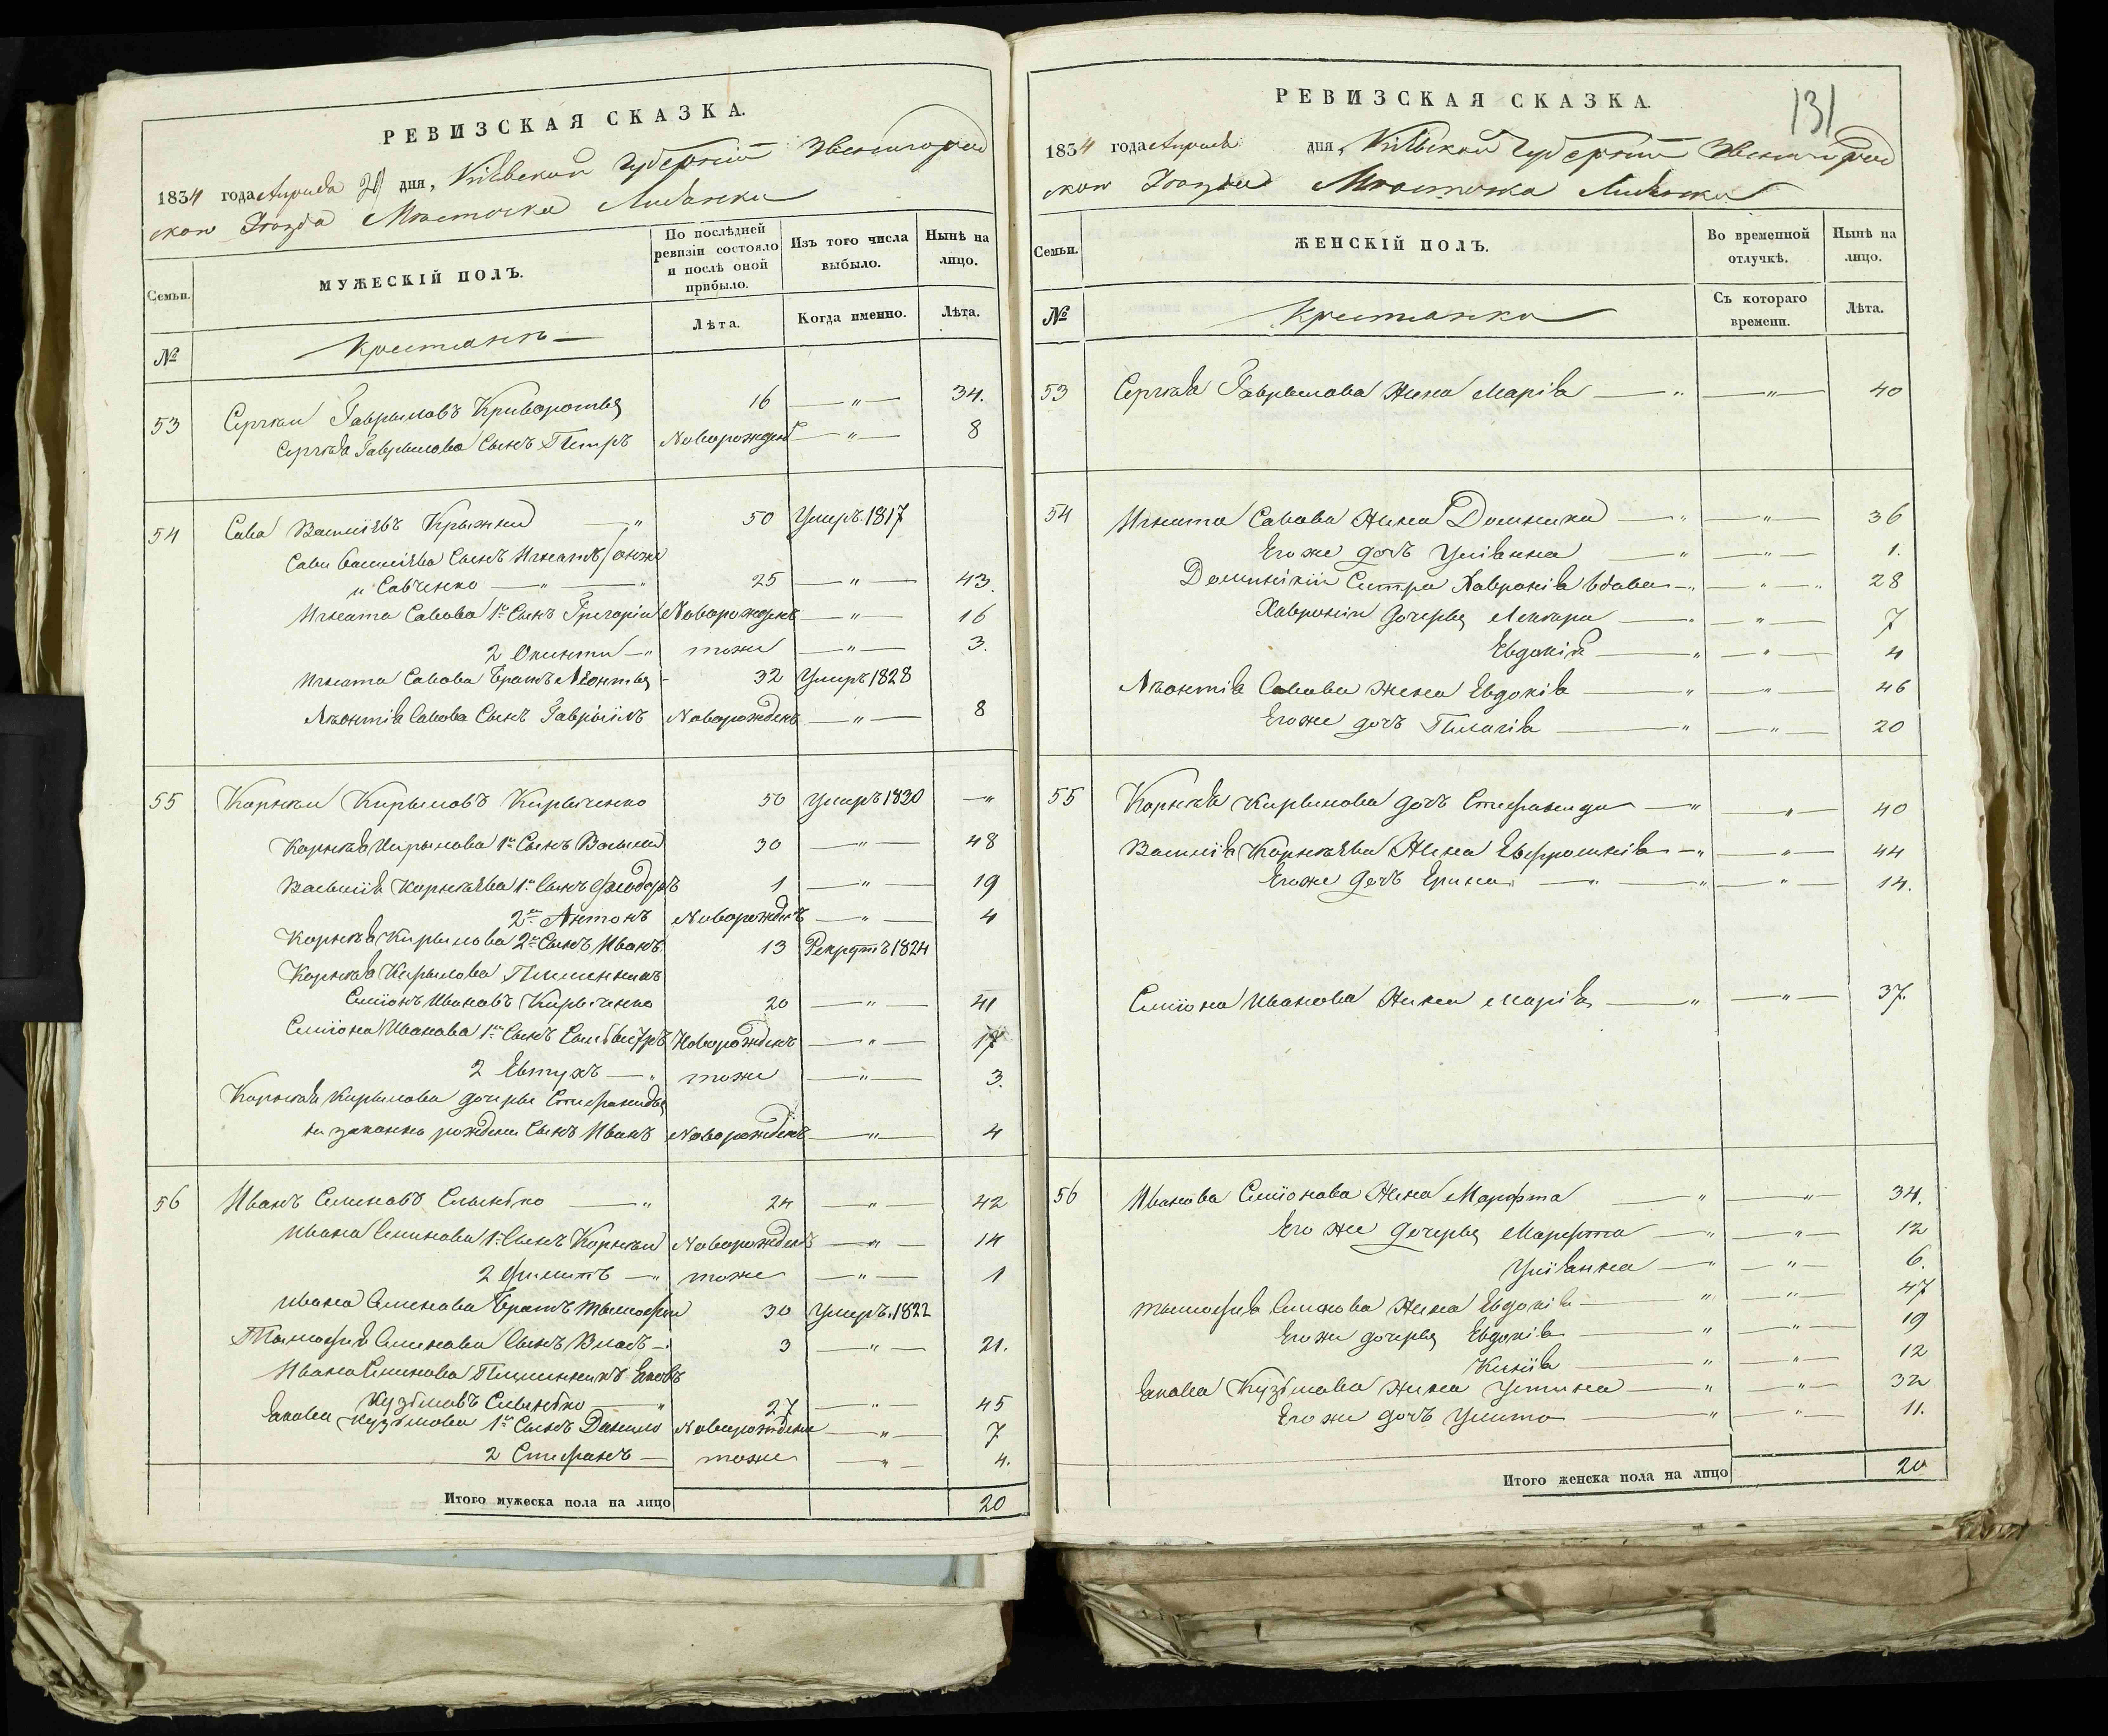 РЕВИЗСКАЯ СКАЗКА.
1834 года Апреля 20 дня, Кіевской Губерніи Звенигород
ского Уезда Местечка Лисянки
Семьи.
МУЖЕСКІЙ ПОЛЪ.
По послѣдней ревизіи состояло и послѣ оной прибыло.
Изъ того числа выбыло.
Нынѣ на лицо.
№
Крестьянъ
Лѣта.
Когда именно.
Лѣта.
53 Сергей Гаврыловъ Криворотья 16 — " — 34.
Сергея Гаврылова Сынъ Петръ Новорожден — " — 8
54 Сава Василіевъ Крыжкій — " 50 Умеръ 1817
Савы Василіева Сынъ Игнатъ онже
и Савченко — " — " 25 — " — 43.
Игната Савова 1й Сынъ Григорій Новорожденъ — " — 16
2 — " тоже — " — 3.
Игната Савова Братъ Леонтій - 32 Умеръ 1828
Леонтія Савова Сынъ Гаврыилъ Новорожденъ — " — 8
55 Корней Кирыловъ Кирыченко 50 умеръ 1830 — "
Корнея Кирылова 1й Сынъ Василий 30 — " — 48
Василія Корнеева 1й Сынъ Фіодоръ 1 — " — 19
2й Антонъ Новорожденъ — " — 4
Корнея Кирылова 2й Сынъ Иванъ 13 Рекрутъ 1824
Корнея Кирылова Племенникъ
Семіонъ Ивановъ Кирыченко 20 — " — 41
Семіона Иванова 1й Сынъ Новорожденъ — " — 17
2 Евтухъ — " тоже — " — 3.
Корнея Кирылова дочеры Стефаниды
не законно рожденн Сынъ Иванъ Новорожденъ — " — 4
56 Иванъ Семеновъ — " 24 — " — 42
Ивана Семенова 1й Сынъ Корней Новорожденъ — " — 14
2 — " тоже — " — 1
Ивана Семенова Братъ Тымофей 30 Умеръ 1822
Тымофея Семенова Сынъ Власъ — 3 — " — 21.
Ивана Семенова Племинникъ Яковъ
Кузьмовъ " 27 — " — 45
Якова Кузьмова 1й Сынъ Данило Новорожденъ — " — 7
2 Стефанъ — тоже — " — 4.
Итого мужеска пола на лицо 20
РЕВИЗСКАЯ СКАЗКА.
131
1834 года Апреля дня, Кіевской Губерніи Звенигород
ского Уезда Местечка Лисянки
Семьи.
ЖЕНСКІЙ ПОЛЪ.
Во временной отлучкѣ.
Нынѣ на лицо.
№
Крестьянки
Съ котораго времени.
Лѣта.
53 Сергея Гаврылова Жена Марія — " — " — 40
54 Игната Савова Жена Домникія — " — " — 36
Егоже дочъ Уліянна — " — " — 1.
Домникіи Сестра Хавронія вдова — " — " — 28
Хавроніи дочеры — " — " — 7
Евдокія — " — " — 4
Леонтія Савова Жена Евдокія — " — " — 46
Егоже дочъ Пелагія — " — " — 20
55 Корнея Кирылова дочъ Стефанида — " — " — 40
Василія Корнеева Жена Евфросинія — " — " — 44
Егоже дочъ Ерина — " — " — " — 14.
Семіона Иванова Жена Марія — " — " — 37.
56 Иванова Семіонова Жена Марфта — " — " — 34.
Его же дочеры Марфта — " — " — 12
Уліянна — " — " — 6.
Тымофея Семенова Жена Евдокія — " — " — 47
Егоже дочеры Евдокія — " — " — 19
— " — " — 12
Якова Кузьмова жена Устина — " — " — 32
Егоже дочъ — " — " — 11.
Итого женска пола на лицо 20